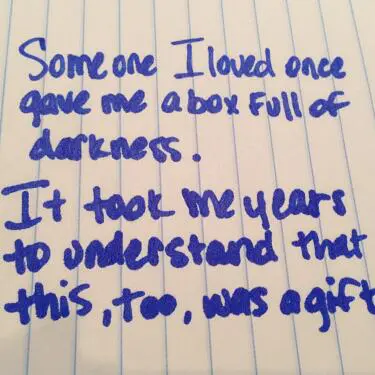 Someone I loved once
gave me a box full of
darkness.
It took me years
to understand that
this, too, was a gift